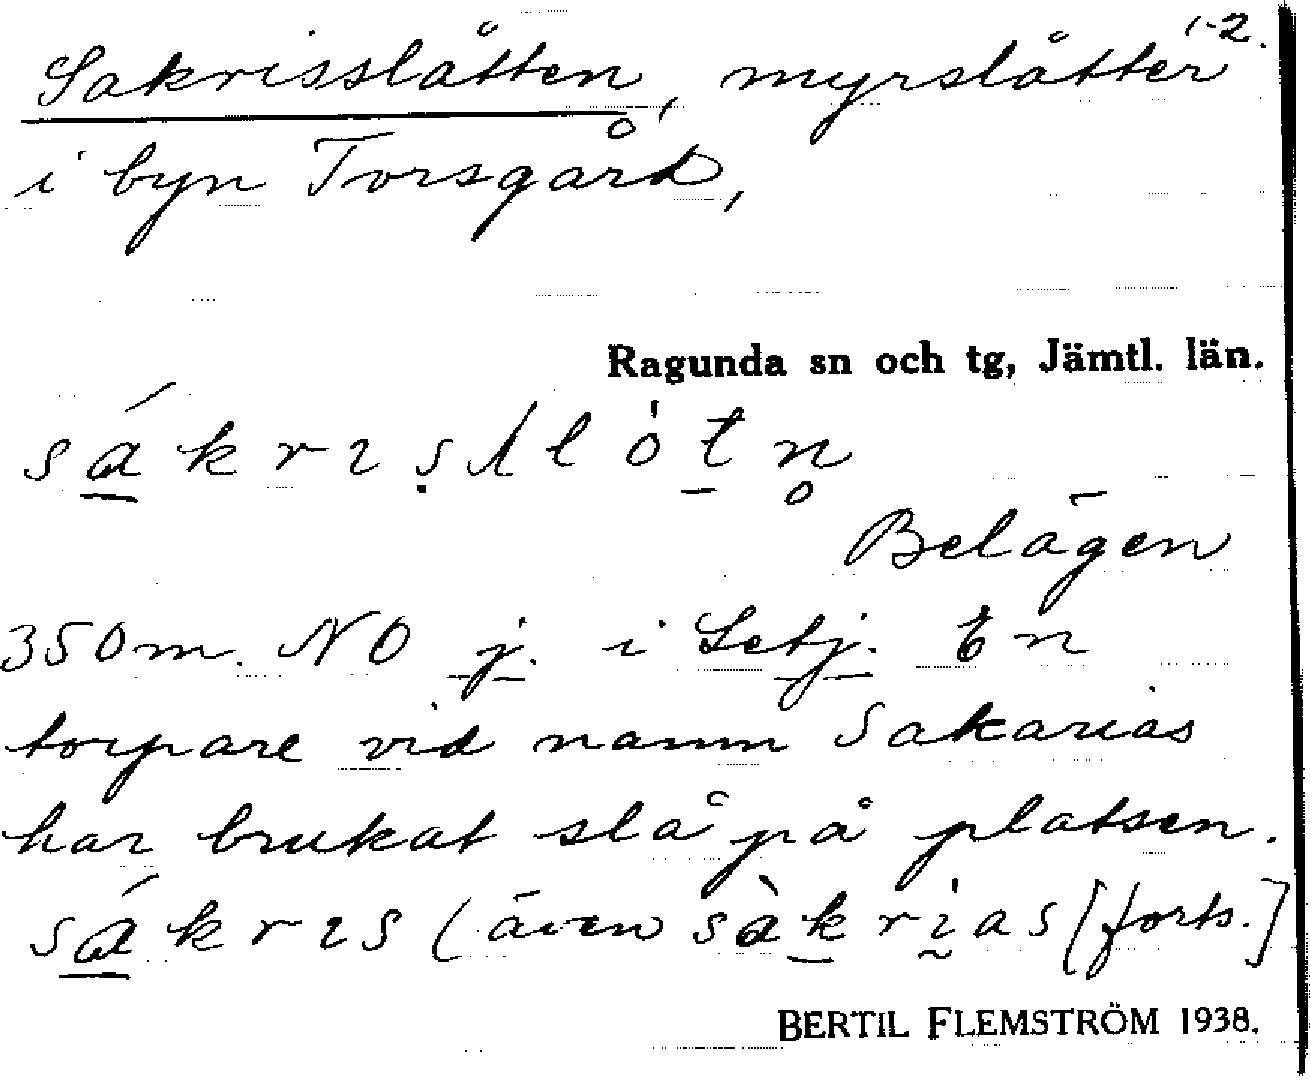 1-2.
Sakrisslåtten, myrslåtter
i byn Torsgård,
Ragunda sn och tg, Jämtl. län.
Belägen
350 m. NO j. i Setj. En
torpare vid namn Sakarias
har brukat slå på platsen.
sákrɩs (även sàkrìas [forts.]
BERTIL FLEMSTRÖM 1938.